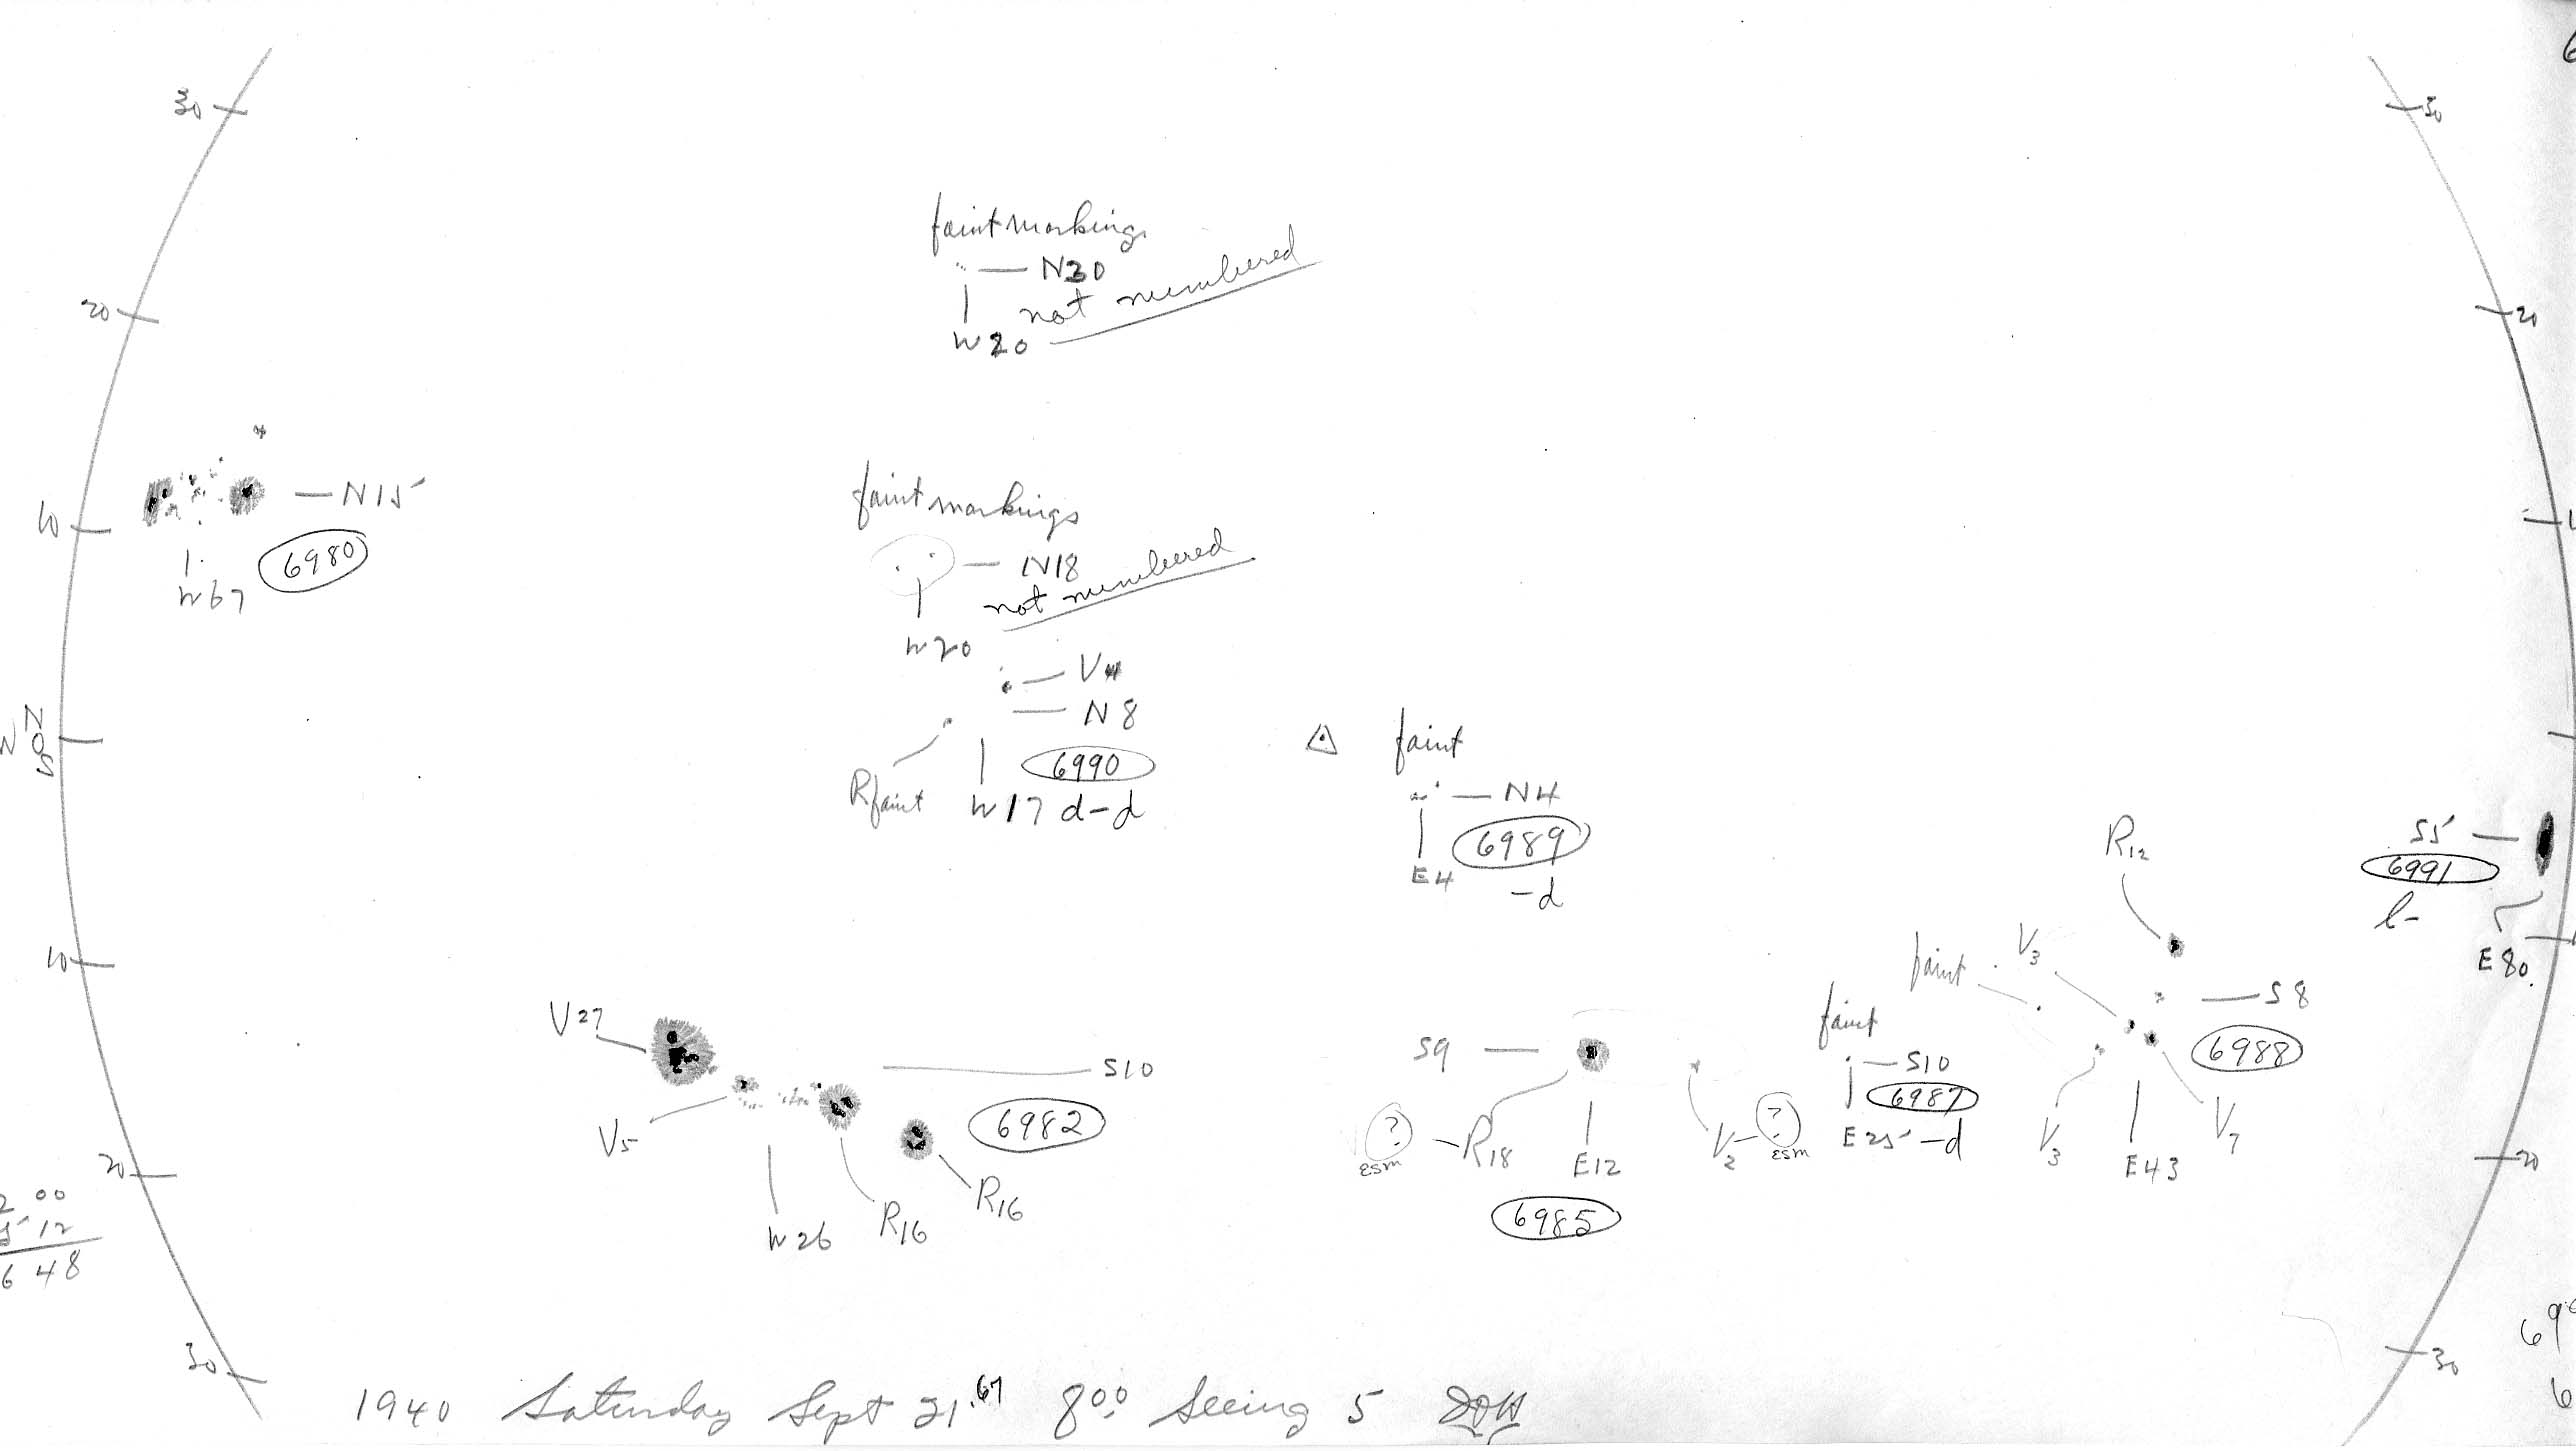 30
30
faint markings
N30
not numbered
W20
20
20
N15
10
6980
W67
faint markings
N18
not numbered
W20
V4
N8
6990
R faint
W17 d-d
N
W 0
S
faint
N4
6989
E4
-d
R12
S5
6991
l-
E80
10
V27
V5
S10
6982
R16
R16
W26
S9
?
ESM
R18
E12
6985
V2
?
ESM
faint
S10
6987
E25 -d
faint
V3
S8
6988
V3
E43
V7
20
20
2 00
5 12
6 48
30
30
1940 Saturday Sept 21.67 8 00 Seeing 5